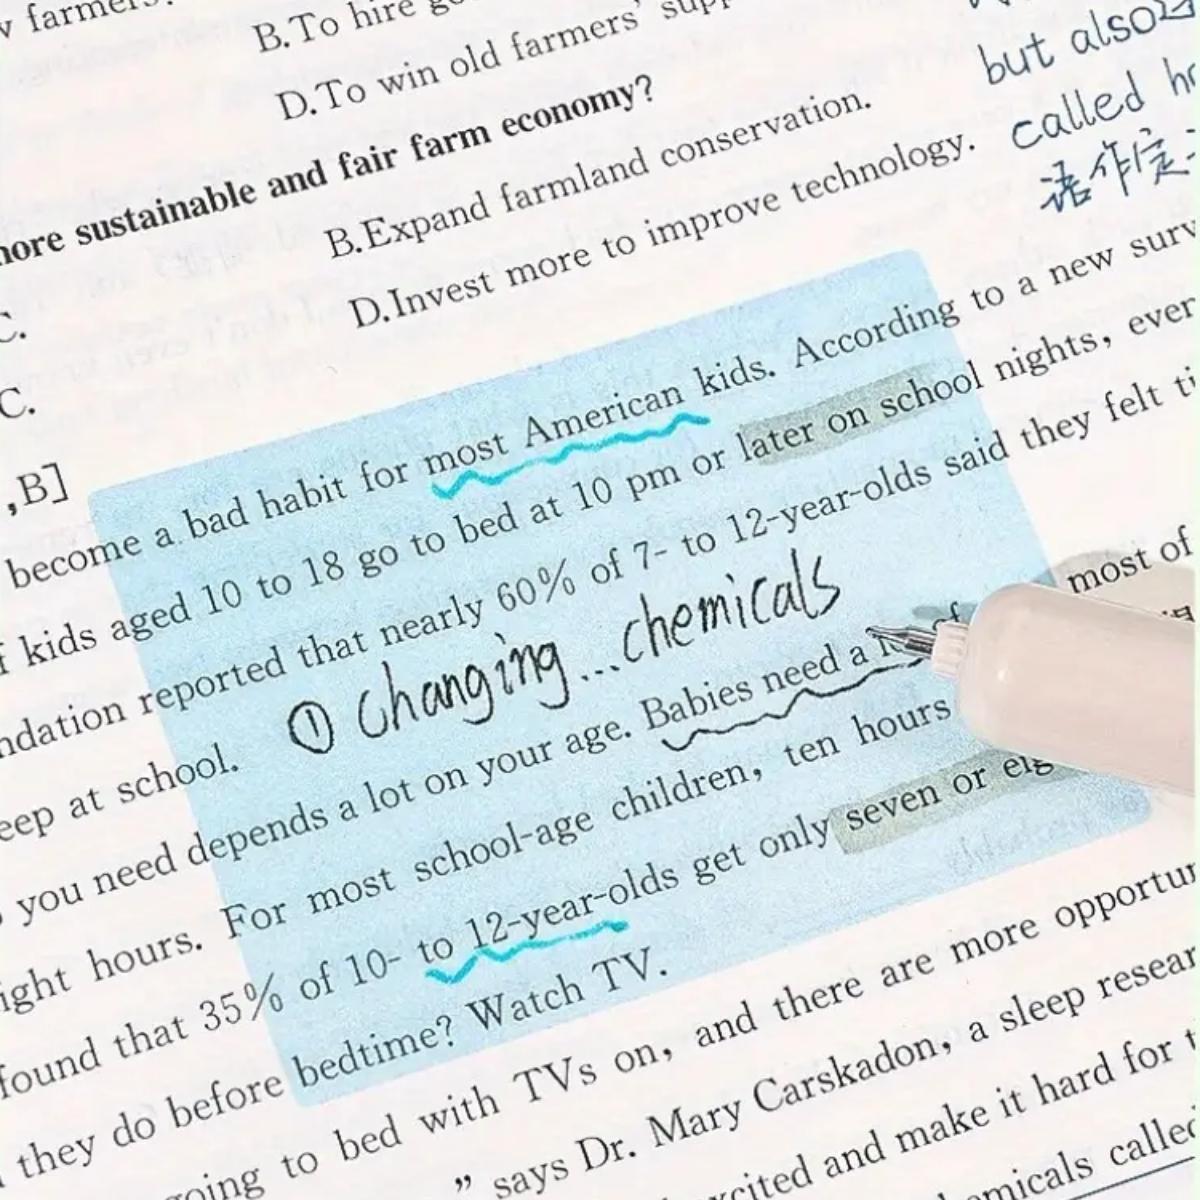 w farmers?
B.To hire
D.To win old farmers' supp
more sustainable and fair farm economy?
B.Expand farmland conservation.
C.
D.Invest more to improve technology.
C.
but also
called
语作定
,B]
become a bad habit for most American kids. According to a new surv
f kids aged 10 to 18 go to bed at 10 pm or later on school nights, ever
ndation reported that nearly 60% of 7- to 12-year-olds said they felt ti
eep at school.
① Changing...chemicals
most of
you need depends a lot on your age. Babies need a of
ight hours. For most school-age children, ten hours
found that 35% of 10- to 12-year-olds get only seven or eig
they do before bedtime? Watch TV.
going to bed with TVs on, and there are more opportun
” says Dr. Mary Carskadon, a sleep resear
xcited and make it hard for t
emicals called